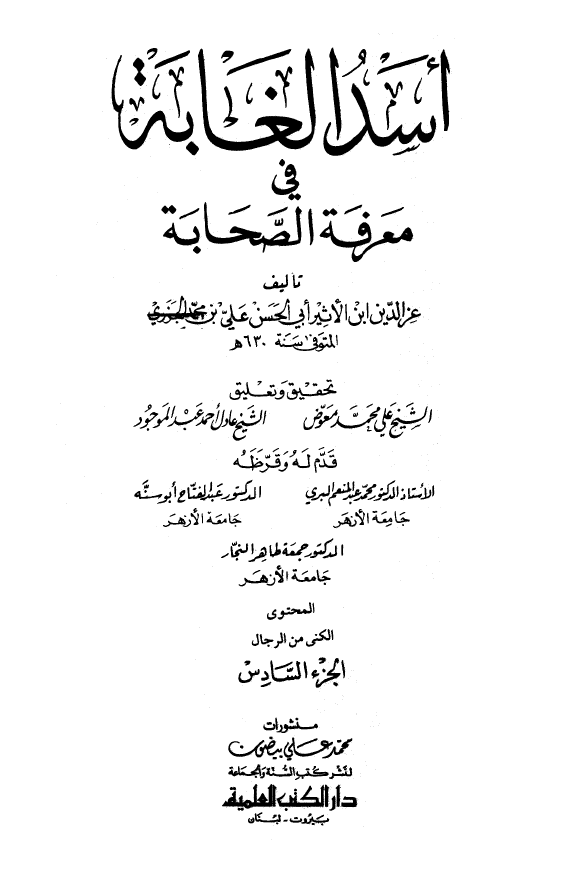 أسد الغابة
في
معرفة الصحابة
تأليف
عز الدين ابن الأثير أبي الحسن علي بن محمد الجزري
المتوفى سنة ٦٣٠ه
تحقيق وتعليق
الشيخ علي محمد معوض الشيخ عادل أحمد عبد الموجود
قدم له وقرظه
الأستاذ الدكتور محمد عبد المنعم البري الدكتور عبد الفتاح أبو سنه
جامعة الأزهر جامعة الأزهر
الدكتور جمعة طاهر النجار
جامعة الأزهر
المحتوى
الكنى من الرجال
الجزء السادس
منشورات
محمد علي بيضون
لنشر كتب السنة والجماعة
دار الكتب العلمية
بيروت - لبنان